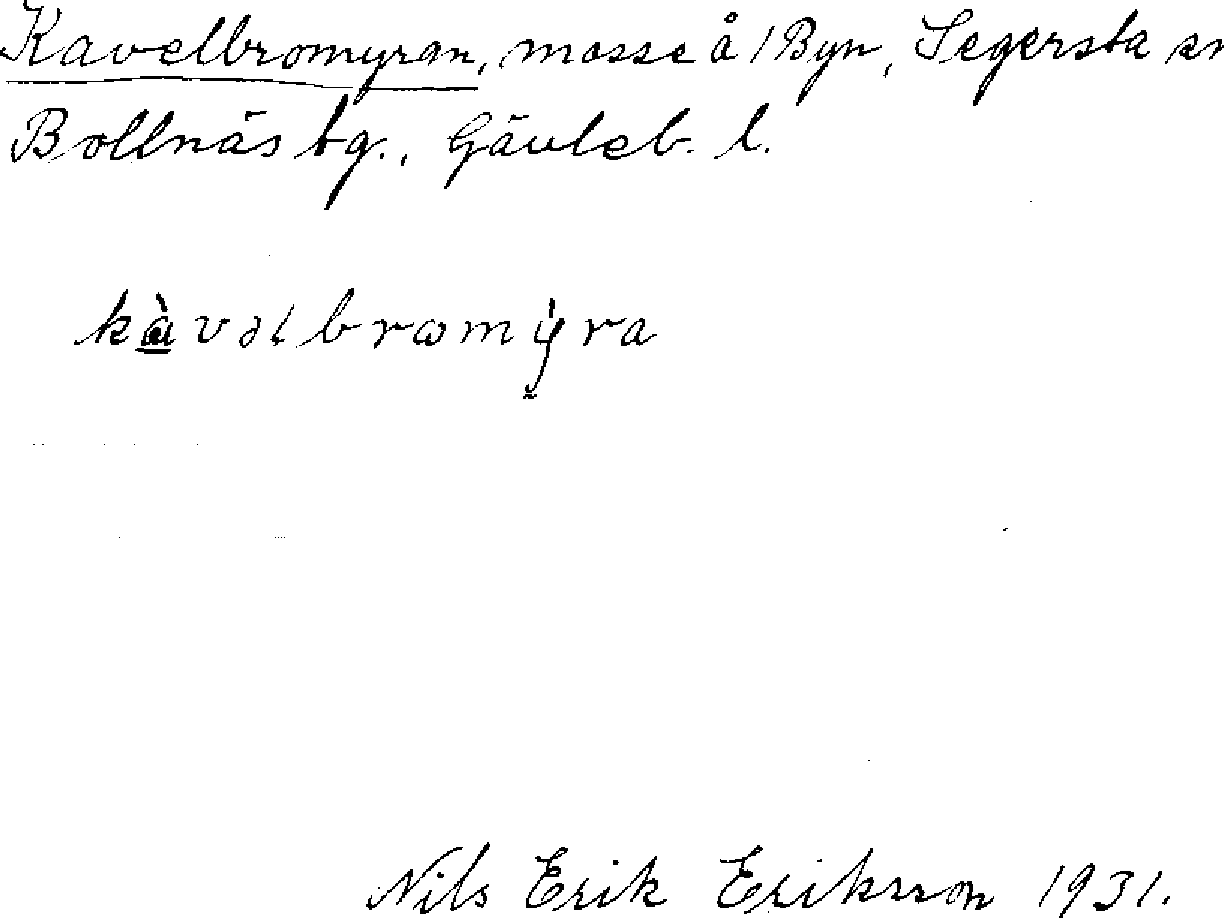 Kavelbromyran, mosse å /Byn, Segersta sn
Bollnäs tg., Gävleb. l.
kàvəlbrωmỳra
Nils Erik Eriksson 1931.